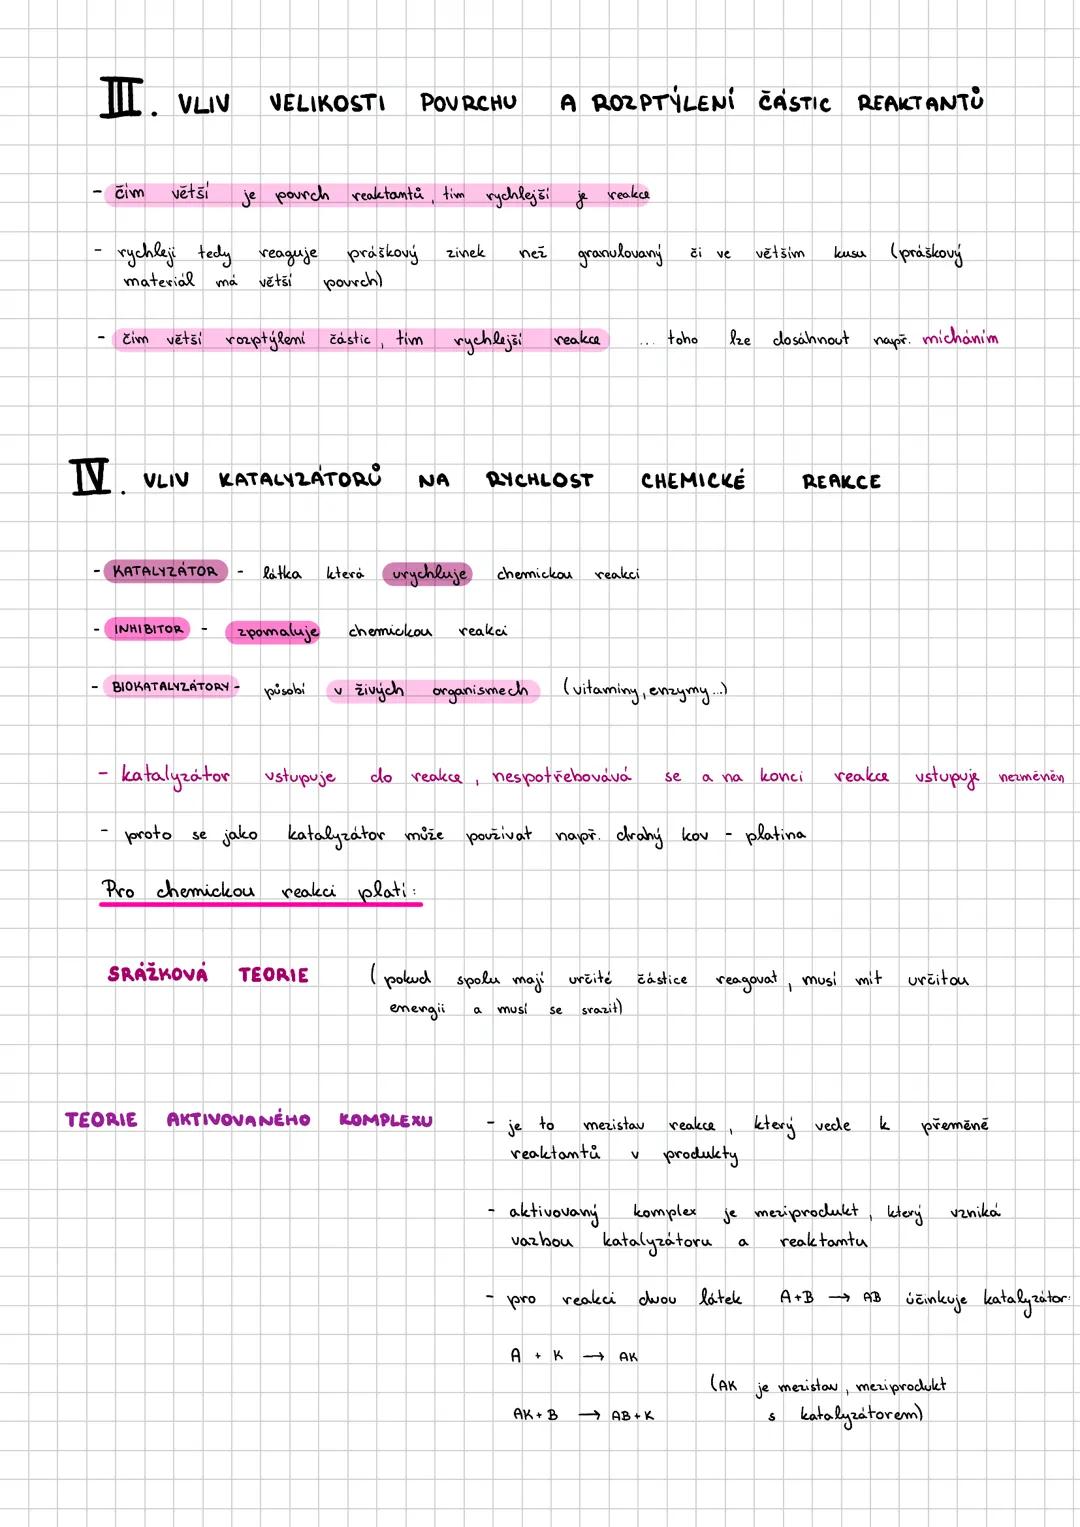 III. VLIV VELIKOSTI POVRCHU A ROZPTÝLENÍ ČÁSTIC REAKTANTŮ
- čím větší je povrch reaktantů, tím rychlejší je reakce
- rychleji tedy reaguje práškový zinek než granulovaný či ve větším kusu (práškový
materiál má větší povrch)
- čím větší rozptýlení částic, tím rychlejší reakce ... toho lze dosáhnout např. mícháním
IV. VLIV KATALYZÁTORŮ NA RYCHLOST CHEMICKÉ REAKCE
- KATALYZÁTOR - látka která urychluje chemickou reakci
- INHIBITOR - zpomaluje chemickou reakci
- BIOKATALYZÁTORY - působí v živých organismech (vitamíny, enzymy...)
- katalyzátor vstupuje do reakce, nespotřebovává se a na konci reakce vstupuje nezměněn
- proto se jako katalyzátor může používat např. drahý kov - platina
Pro chemickou reakci platí:
SRÁŽKOVÁ TEORIE (pokud spolu mají určité částice reagovat, musí mít určitou
energii a musí se srazit)
TEORIE AKTIVOVANÉHO KOMPLEXU - je to mezistav reakce, který vede k přeměně
reaktantů v produkty
- aktivovaný komplex je meziprodukt, který vzniká
vazbou katalyzátoru a reaktantu
- pro reakci dvou látek A+B → AB účinkuje katalyzátor:
A + K → AK
(AK je mezistav, meziprodukt
AK + B → AB + K s katalyzátorem)